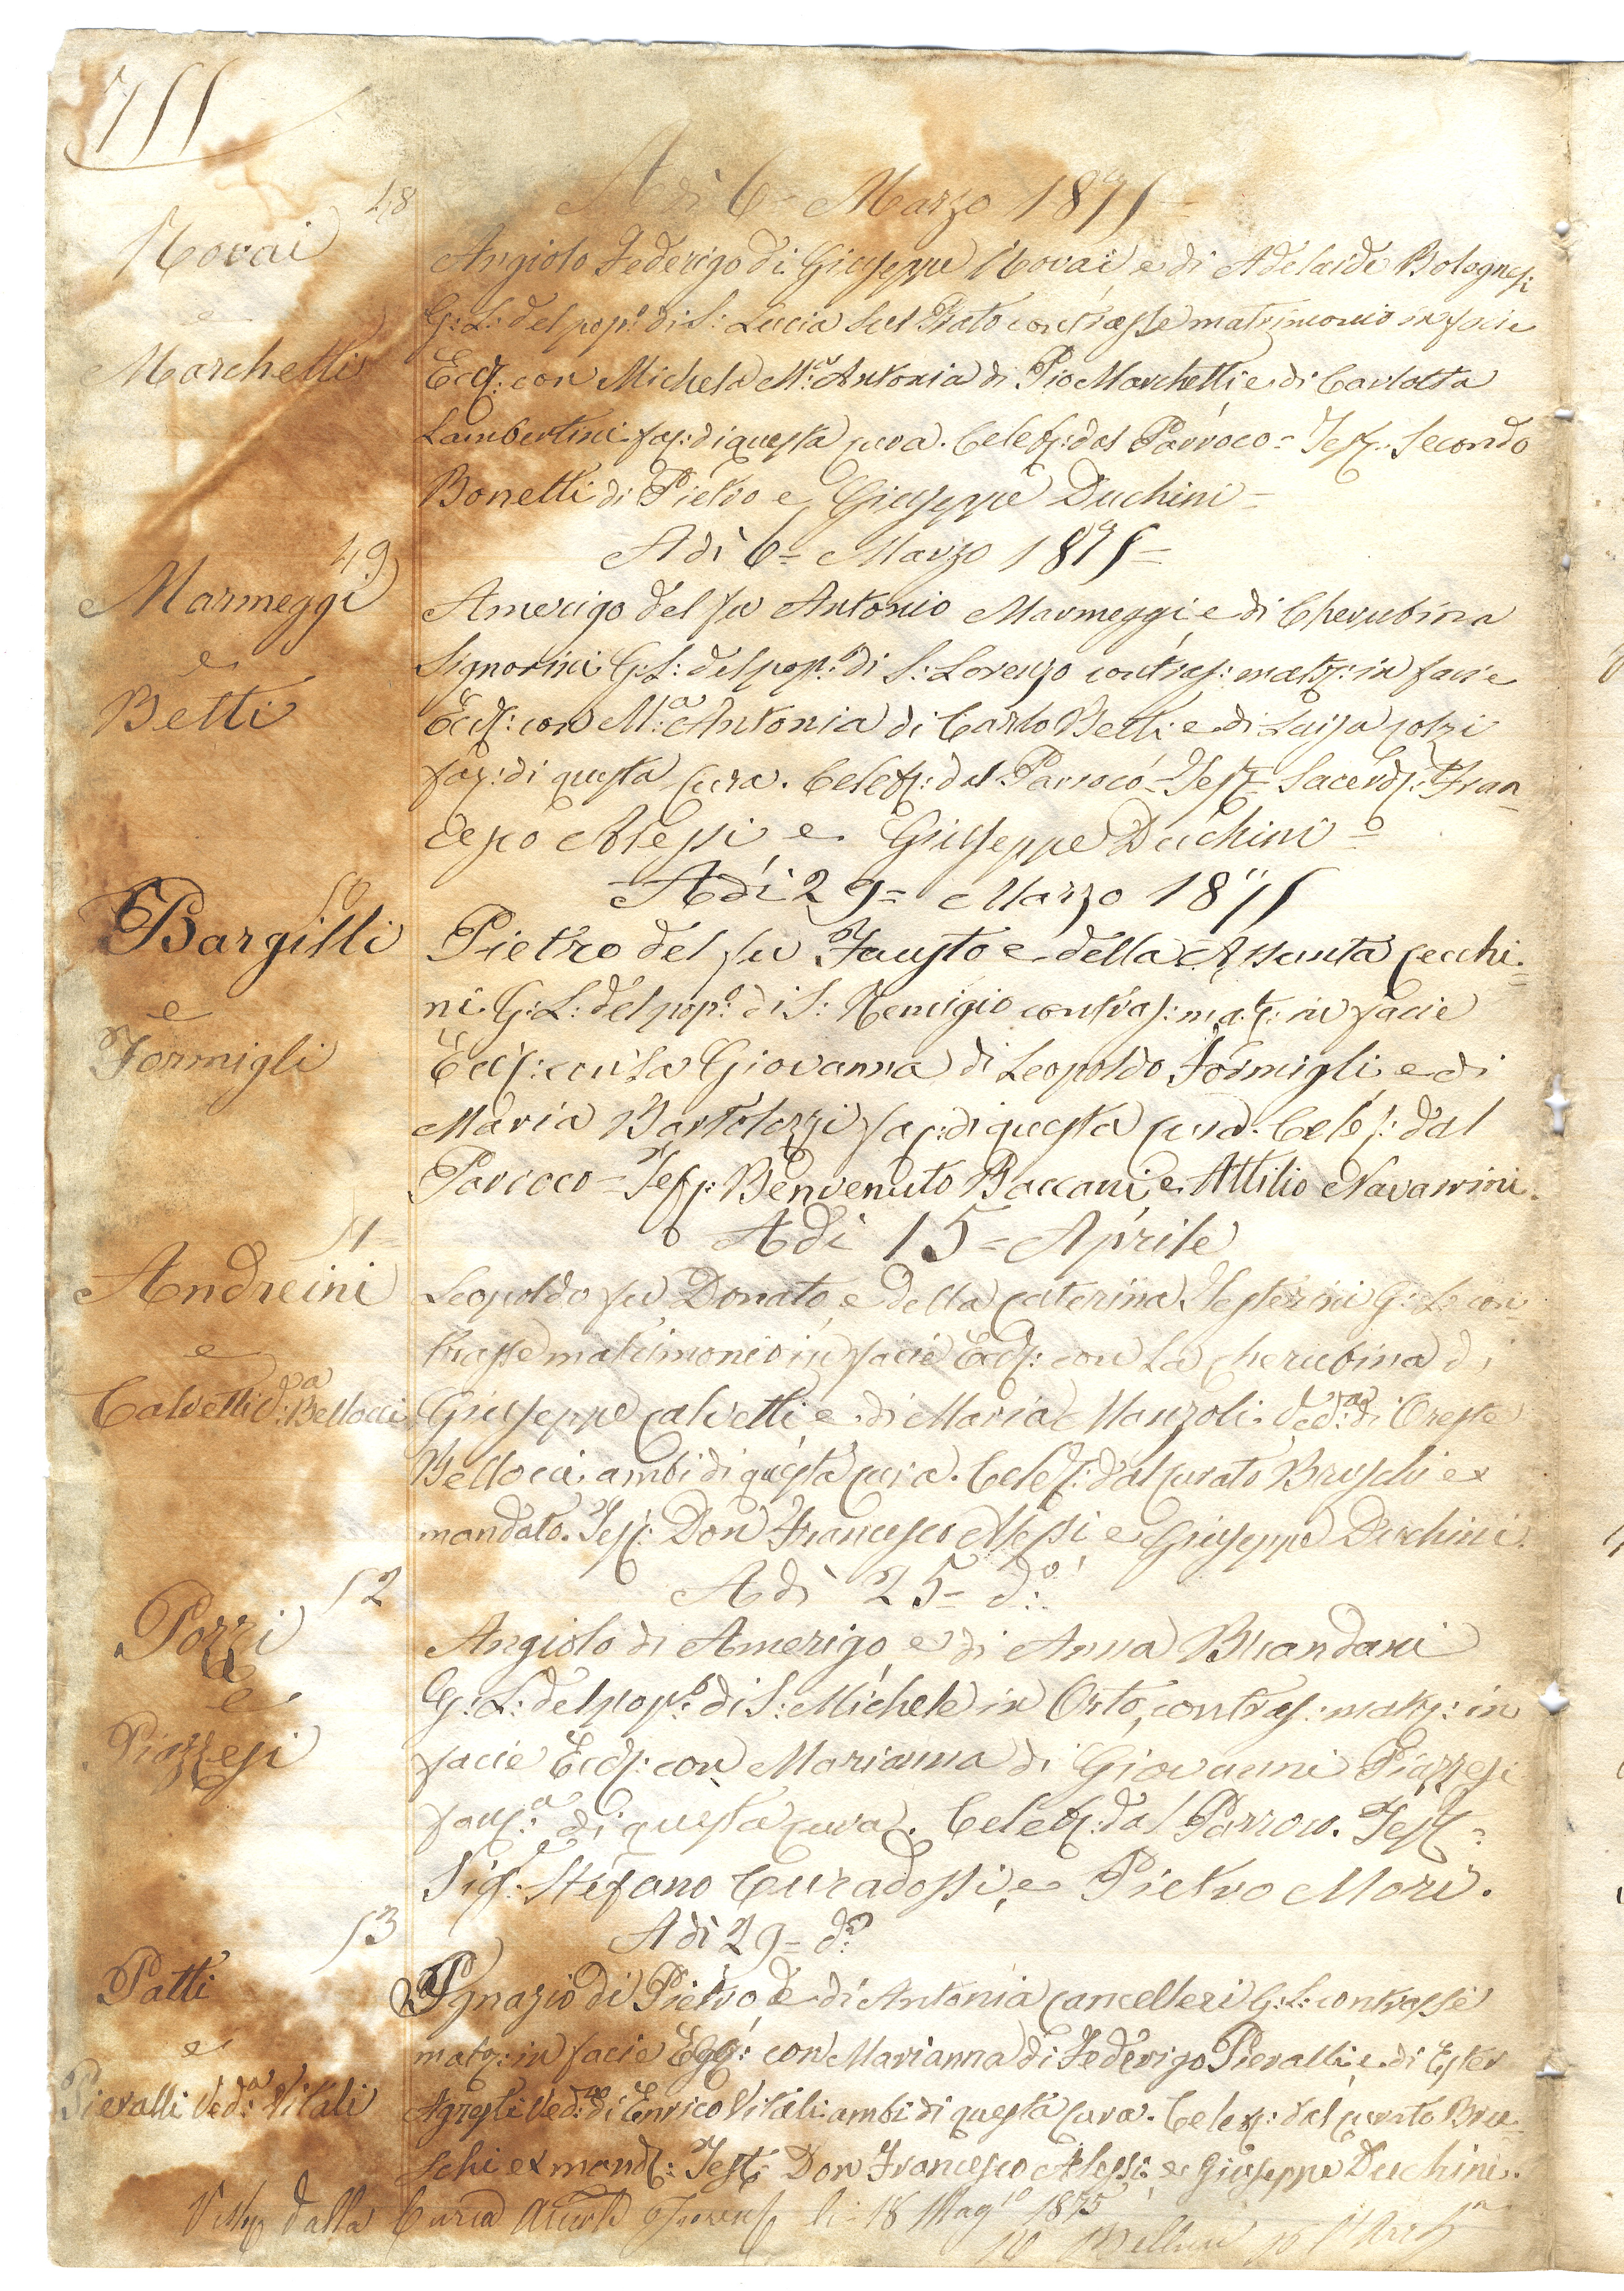 755
48
Adì 6= Marzo 1875=
Novai
e
Marchetti
Angiolo Federigo di Giuseppe Novai e di Adelaide Bolognesi
G: L: del pop:º di S: Lucia sul Prato contrasse matrimonio in facie
Eccl: con Michela M:ª Antonia di Pio Marchetti e di Carlotta
Lambertini fan: di questa cura. Celeb: dal Parroco= Test: Secondo
Bonetti di Pietro e Giuseppe Duchini=
49
Adì 6= Marzo 1875=
Marmeggi
e
Betti
Amerigo del fu Antonio Marmeggi e di Cherubina
Signorini G: L: del pop:º di S: Lorenzo contras: matr: in facie
Eccl: con M:ª Antonia di Carlo Betti e di Luisa
fan: di questa Cura. Celeb: dal Parroco= Test= Sacerd: Fran=
cesco Alessi e Giuseppe Duchini=
50
Adì 29= Marzo 1875
Bargilli
e
Formigli
Pietro del fu Fausto e della Assunta Cecchi=
ni G: L: del pop:º di S: Remigio contras: mat: in facie
Eccl: con la Giovanna di Leopoldo Formigli e di
Maria Bartolozzi fan: di questa cura. Celeb: dal
Parroco= Test: Benvenuto Baccani e Attilio Navarrini.
51=
Adì 15= Aprile
Andreini
e
Calvetti V:ª Bellocci
Leopoldo fu Donato e della Caterina G: L: con=
trasse matrimonio in facie Eccl: con la Cherubina di
Giuseppe Calvetti e di Maria Manzoli Ved:ª di Oreste
Bellocci ambi di questa cura. Celeb: dal curato Bruschi ex
mandato. Test: Don Francesco Alessi e Giuseppe Duchini.
52
Adì 25= d:º
Pozzi
e
Piazzesi
Angiolo di Amerigo e di Anna Brandani
G: L: del pop:º di S: Michele in Orto, contras: matr: in
facie Eccl: con Marianna di Giovanni Piazzesi
fanc:ª di questa cura. Celeb: dal Parroco. Test=
Sig:e Stefano Curadossi, e Pietro Mori.
53
Adì 29= d:º
Patti
e
Pieralli Ved:ª Vitali
Ignazio di Pietro, e di Antonia Cancelleri G: L: contrasse
matr: in facie Egg: con Marianna di Federigo Pieralli e di Ester
Agresti Ved:ª di Enrico Vitali ambi di questa Cura. Celeb: dal curato Bru=
schi ex mand: Test: Don Francesco Alessi e Giuseppe Duchini.
Visto dalla Curia li 18 Magº 1875